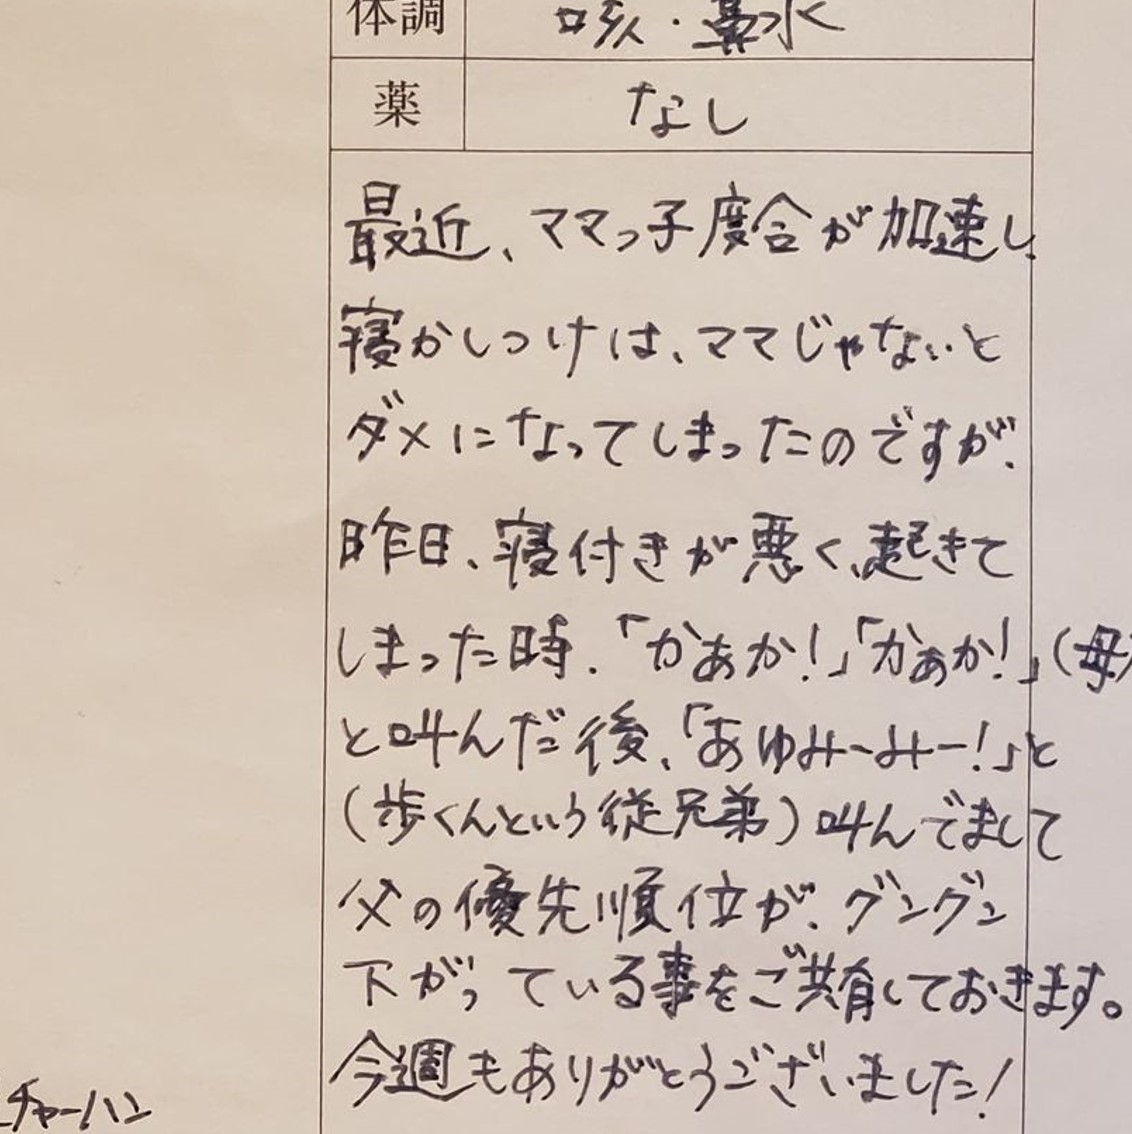 体調 咳・鼻水
薬 なし
最近、ママっ子度合が加速し、
寝かしつけは、ママじゃないと
ダメになってしまったのですが、
昨日、寝付きが悪く、起きて
しまった時、「かあか!」「かぁか!」(母)
と叫んだ後、「あゆみーみー!」と
(歩くんという従兄弟)叫んでまして
父の優先順位が、グングン
下がっている事をご共有しておきます。
今週もありがとうございました!
チャーハン